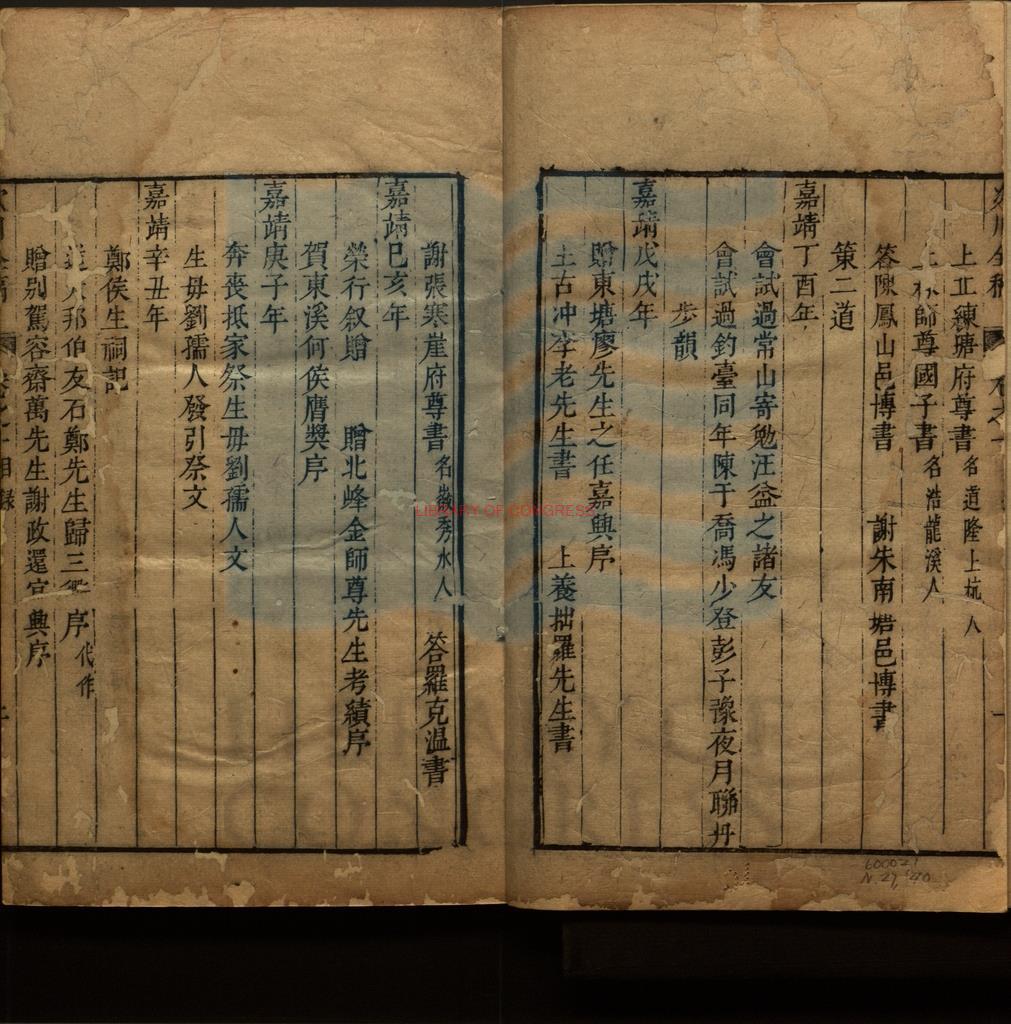 上正練塘府尊書 名道隆上杭人
師尊國子書 名浩龍溪人
答陳鳳山邑博書 謝朱南塘邑博書
策二道
嘉靖丁酉年
會試過常山寄勉汪益之諸友
會試過釣臺同年陳于喬馮少登彭子豫夜月聯丹
步韻
嘉靖戊戌年
贈東塘廖先生之任嘉興序
上古冲李老先生書 上養拙羅先生書
謝張寒崖府尊書 名 秀水人 答羅克温書
嘉靖已亥年
榮行叙贈 贈北峰金師尊先生考績序
賀東溪何侯膺奬序
嘉靖庚子年
奔喪抵家祭生毋劉孺人文
生毋劉孺人發引祭文
嘉靖辛丑年
鄭侯生祠記
邦伯友石鄭先生歸三 序 代作
贈别駕容齋萬先生謝政還宜興序
目錄
LIBRARY OF CONGRESS